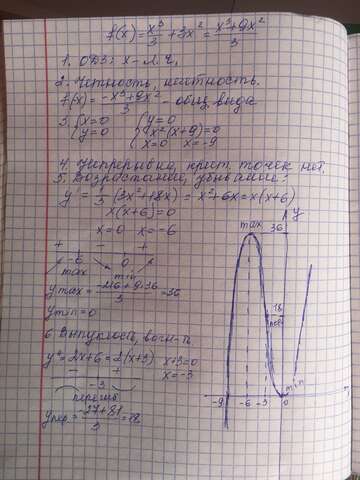 f(x)=x³/3+3x²=(x³+9x²)/3
1. ОДЗ: x-л.ч.
2. Четность, нечетность.
f(x)=(-x³+9x²)/3 - общ. вида
3. {x=0 {y=0
{y=0 {x²(x+9)=0
x=0 x=-9
4. Непрерывна, крит. точек нет.
5. Возрастание, убывание:
y'=1/3(3x²+18x)=x²+6x=x(x+6)
x(x+6)=0
x=0 x=-6
+ - +
-6 0
max min
y max=(-216+9·36)/3=36
y min=0
6
y''=2x+6=2(x+3) x+3=0
x=-3
- +
-3
перегиб
y пер.=(-27+81)/3=18
y
max 36
18
пер
min
-9 -6 -3 0